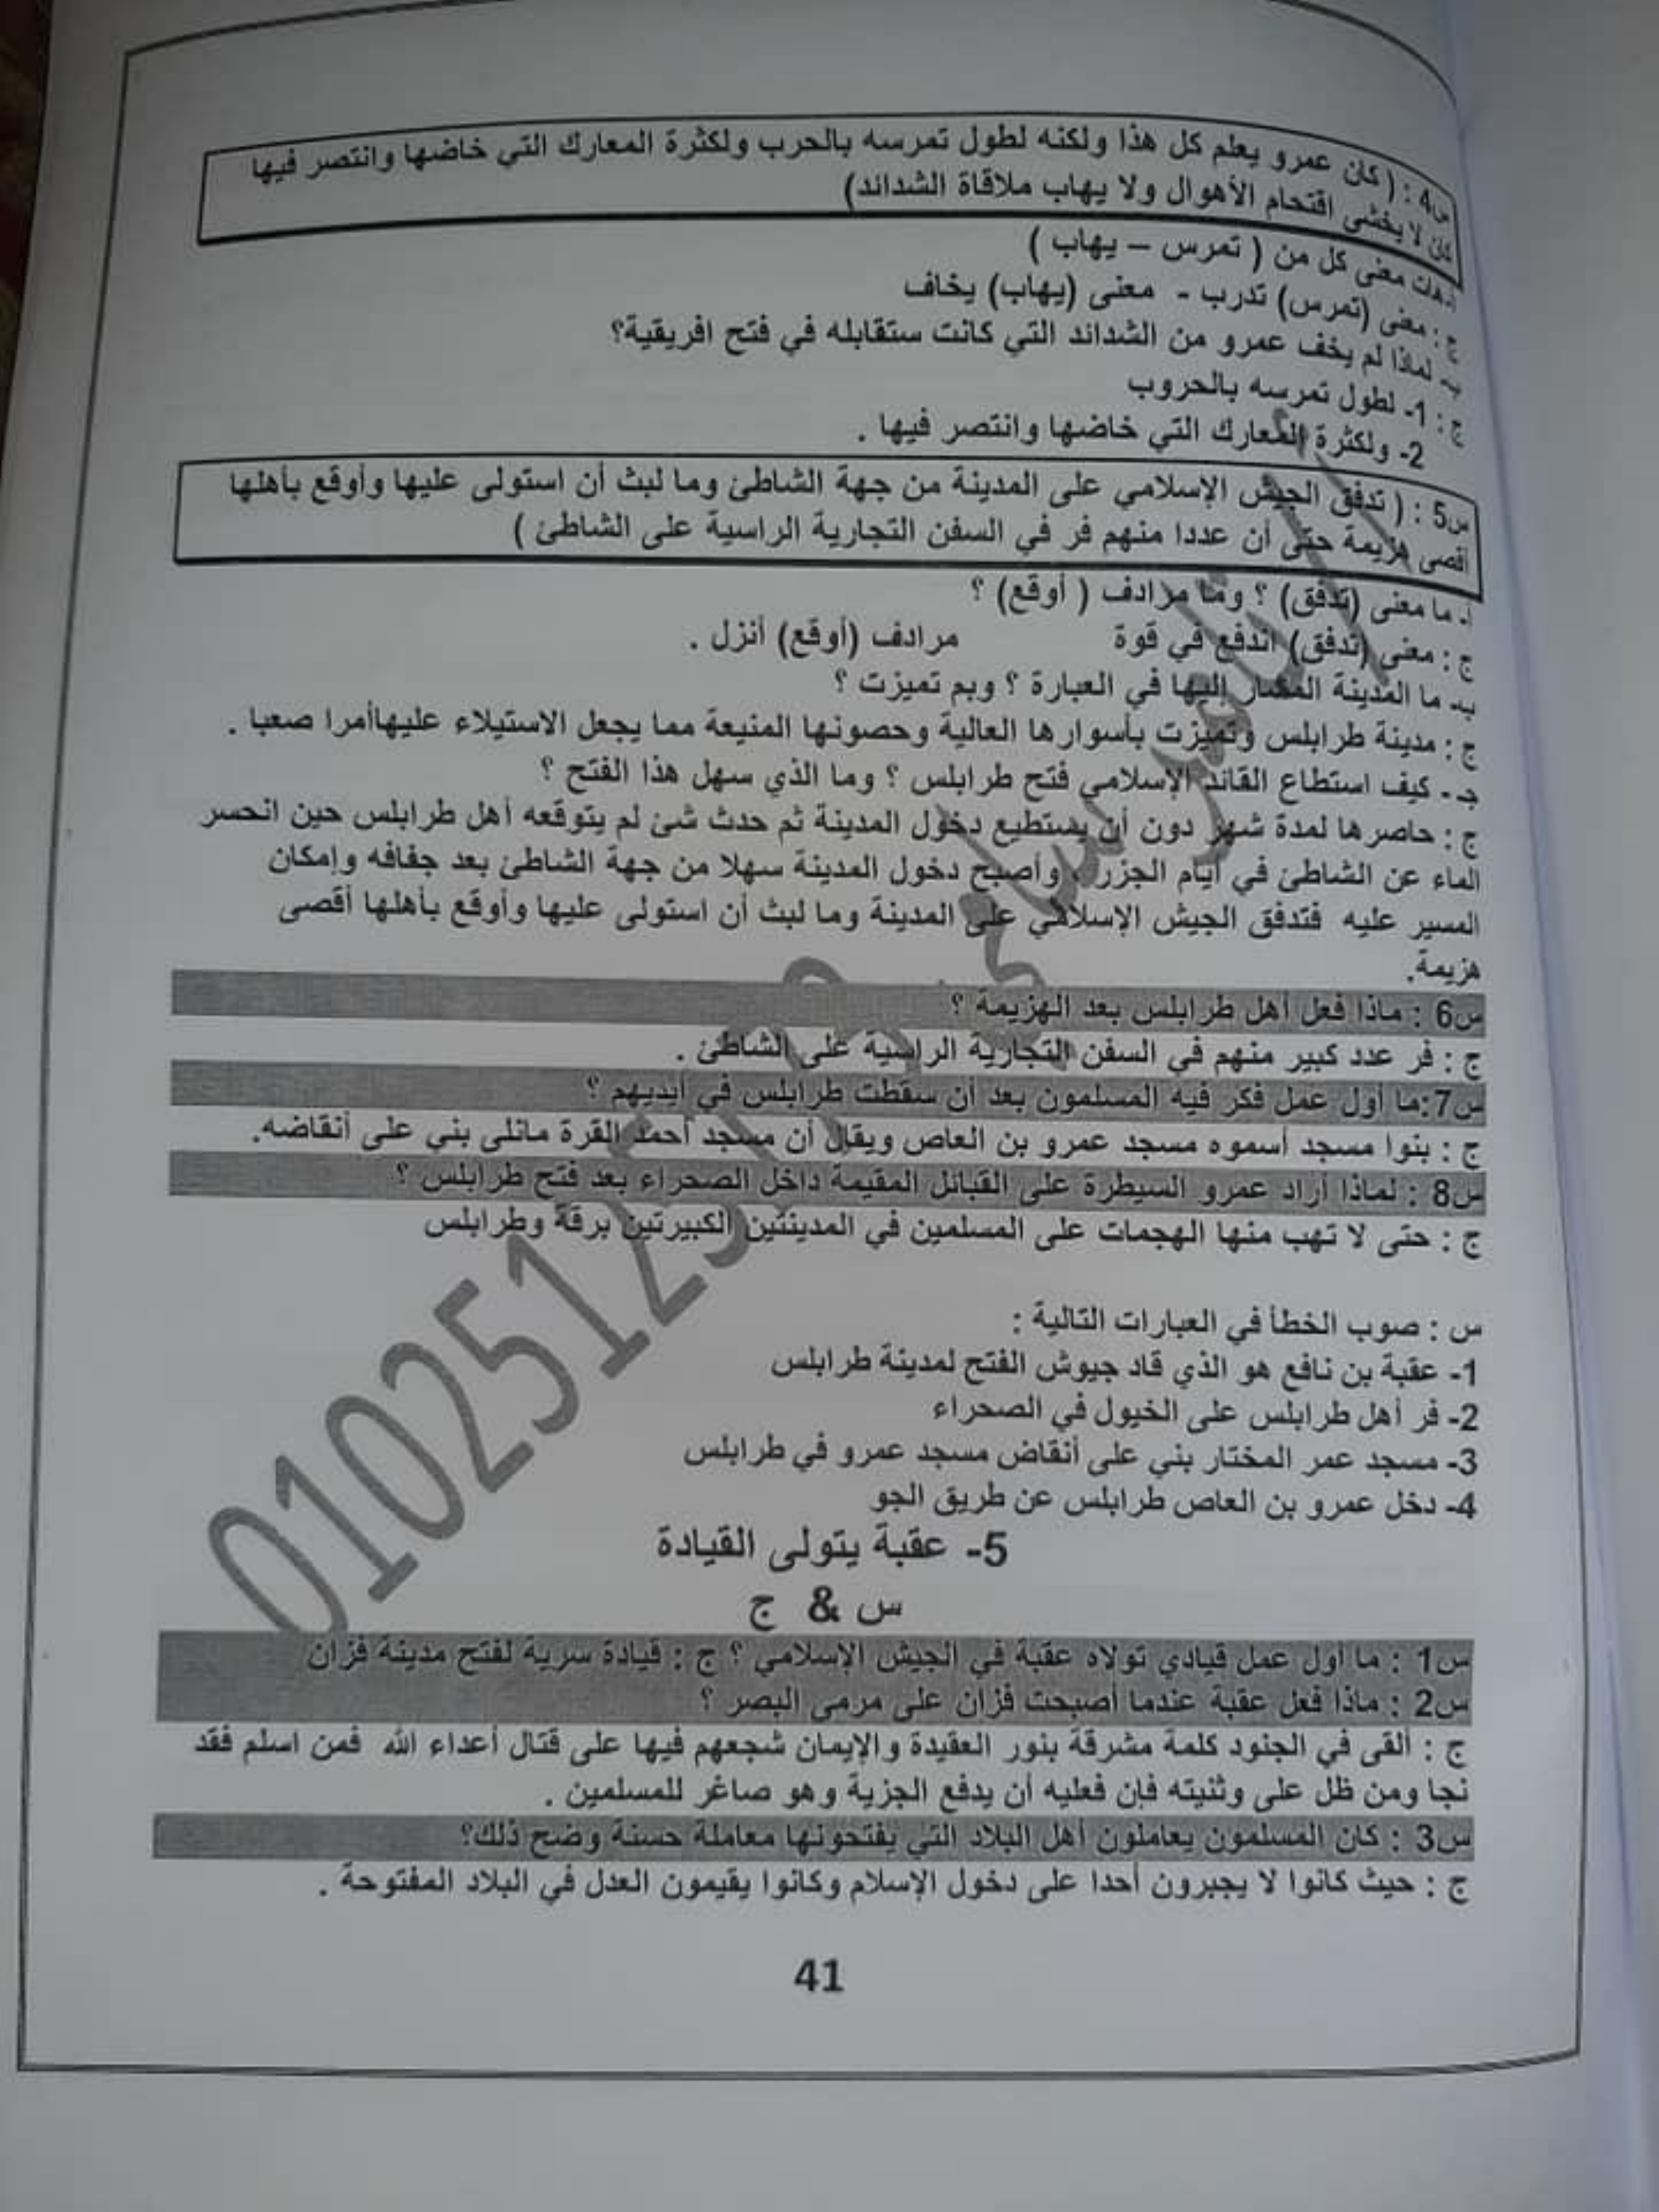 س4 : ( كان عمرو يعلم كل هذا ولكنه لطول تمرسه بالحرب ولكثرة المعارك التي خاضها وانتصر فيها
كان لا يخشى اقتحام الأهوال ولا يهاب ملاقاة الشدائد)
أ- هات معنى كل من ( تمرس – يهاب )
ج : معنى (تمرس) تدرب - معنى (يهاب) يخاف
ب- لماذا لم يخف عمرو من الشدائد التي كانت ستقابله في فتح افريقية؟
ج : 1- لطول تمرسه بالحروب
2- ولكثرة المعارك التي خاضها وانتصر فيها .
س5 : ( تدفق الجيش الإسلامي على المدينة من جهة الشاطئ وما لبث أن استولى عليها وأوقع بأهلها
أقصى هزيمة حتى أن عددا منهم فر في السفن التجارية الراسية على الشاطئ )
أ- ما معنى (تدفق) ؟ وما مرادف ( أوقع) ؟
ج : معنى (تدفق) اندفع في قوة مرادف (أوقع) أنزل .
ب- ما المدينة المشار إليها في العبارة ؟ وبم تميزت ؟
ج : مدينة طرابلس وتميزت بأسوارها العالية وحصونها المنيعة مما يجعل الاستيلاء عليهاأمرا صعبا .
جـ - كيف استطاع القائد الإسلامي فتح طرابلس ؟ وما الذي سهل هذا الفتح ؟
ج : حاصرها لمدة شهر دون أن يستطيع دخول المدينة ثم حدث شئ لم يتوقعه أهل طرابلس حين انحسر
الماء عن الشاطئ في أيام الجزر ، وأصبح دخول المدينة سهلا من جهة الشاطئ بعد جفافه وإمكان
المسير عليه فتدفق الجيش الإسلامي على المدينة وما لبث أن استولى عليها وأوقع بأهلها أقصى
هزيمة.
س6 : ماذا فعل أهل طرابلس بعد الهزيمة ؟
ج : فر عدد كبير منهم في السفن التجارية الراسية على الشاطئ .
س7:ما أول عمل فكر فيه المسلمون بعد أن سقطت طرابلس في أيديهم ؟
ج : بنوا مسجد أسموه مسجد عمرو بن العاص ويقال أن مسجد أحمد القرة مانلى بني على أنقاضه.
س8 : لماذا أراد عمرو السيطرة على القبائل المقيمة داخل الصحراء بعد فتح طرابلس ؟
ج : حتى لا تهب منها الهجمات على المسلمين في المدينتين الكبيرتين برقة وطرابلس
س : صوب الخطأ في العبارات التالية :
1- عقبة بن نافع هو الذي قاد جيوش الفتح لمدينة طرابلس
2- فر أهل طرابلس على الخيول في الصحراء
3- مسجد عمر المختار بني على أنقاض مسجد عمرو في طرابلس
4- دخل عمرو بن العاص طرابلس عن طريق الجو
5- عقبة يتولى القيادة
س & ج
س1 : ما أول عمل قيادي تولاه عقبة في الجيش الإسلامي ؟ ج : قيادة سرية لفتح مدينة فزان
س2 : ماذا فعل عقبة عندما أصبحت فزان على مرمى البصر ؟
ج : ألقى في الجنود كلمة مشرقة بنور العقيدة والإيمان شجعهم فيها على قتال أعداء الله فمن اسلم فقد
نجا ومن ظل على وثنيته فإن فعليه أن يدفع الجزية وهو صاغر للمسلمين .
س3 : كان المسلمون يعاملون أهل البلاد التي يفتحونها معاملة حسنة وضح ذلك؟
ج : حيث كانوا لا يجبرون أحدا على دخول الإسلام وكانوا يقيمون العدل في البلاد المفتوحة .
41